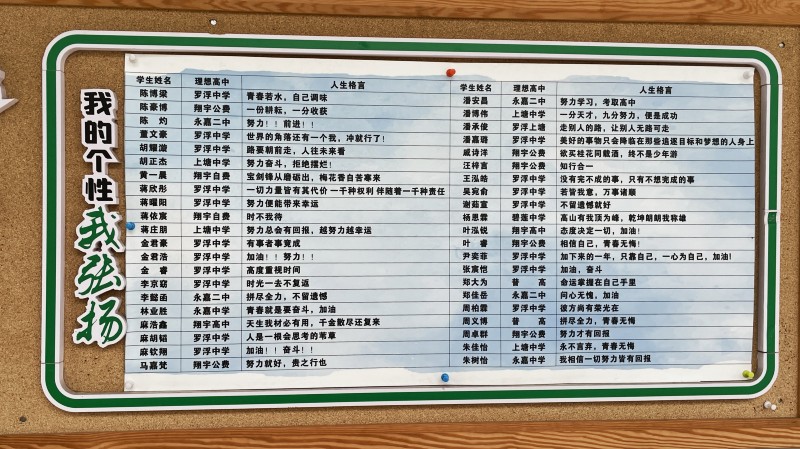 我的个性
我张扬
学生姓名 理想高中 人生格言
陈博梁 罗浮中学 青春若水，自己调味
陈豪博 翔宇公费 一份耕耘，一分收获
陈 灼 永嘉二中 努力！！前进！！
董文豪 罗浮中学 世界的角落还有一个我，冲就行了！
胡耀漩 罗浮中学 路要朝前走，人往未来看
胡正杰 上塘中学 努力奋斗，拒绝摆烂！
黄一晨 翔宇自费 宝剑锋从磨砺出，梅花香自苦寒来
蒋欣彤 罗浮中学 一切力量皆有其代价 一千种权利 伴随着一千种责任
蒋曜阳 罗浮中学 努力便能带来幸运
蒋依宸 翔宇自费 时不我待
蒋庄朋 上塘中学 努力总会有回报，越努力越幸运
金君豪 罗浮中学 有事者事竟成
金君浩 罗浮中学 加油！！努力！！
金 睿 罗浮中学 高度重视时间
李京窈 罗浮中学 时光一去不复返
李懿函 永嘉二中 拼尽全力，不留遗憾
林业胜 永嘉中学 青春就是要奋斗，加油
麻浩鑫 翔宇高中 天生我材必有用，千金散尽还复来
麻胡韬 罗浮中学 人是一根会思考的苇草
麻钦翔 罗浮中学 加油！！奋斗！！
马嘉梵 翔宇公费 努力就好，贵之行也
学生姓名 理想高中 人生格言
潘安昌 永嘉二中 努力学习，考取高中
潘博伟 上塘中学 一分天才，九分努力，便是成功
潘承俊 罗浮上塘 走别人的路，让别人无路可走
潘嘉璐 罗浮中学 美好的事物只会降临在那些追逐目标和梦想的人身上
戚诗洋 翔宇公费 欲买桂花同载酒，终不是少年游
汪梓言 翔宇公费 知行合一
王泓皓 罗浮中学 没有完不成的事，只有不想完成的事
吴宛俞 罗浮中学 若皆我意，万事诸顺
谢茹萱 罗浮中学 不留遗憾就好
杨思霖 碧莲中学 高山有我顶为峰，乾坤朗朗我称雄
叶泓锐 翔宇高中 态度决定一切，加油！
叶 睿 翔宇公费 相信自己，青春无悔！
尹奕菲 罗浮中学 加下来的一年，只靠自己，一心为自己，加油！
张宸恺 罗浮中学 加油，奋斗
郑大为 普 高 命运掌握在自己手里
郑佳岳 永嘉二中 问心无愧，加油
周柏霖 罗浮中学 彼方尚有荣光在
周义博 普 高 拼尽全力，青春无悔
周卓群 翔宇公费 努力才有回报
朱佳怡 上塘中学 永不言弃，青春无悔
朱树怡 永嘉中学 我相信一切努力皆有回报